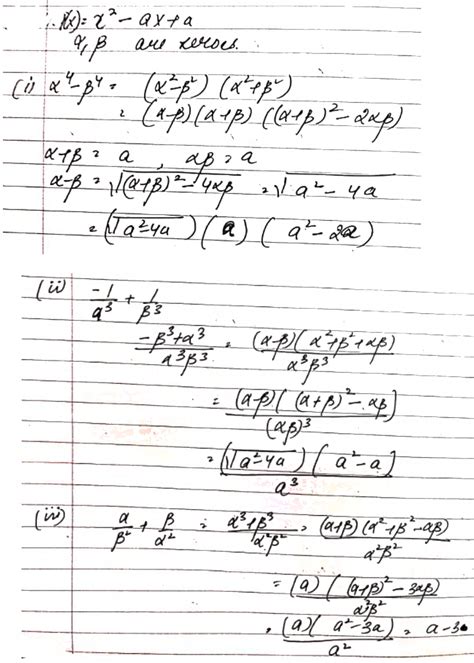 ∴ f(x) = x² - ax + a
α, β are zeroes.
(i) α⁴ - β⁴ = (α² - β²) (α² + β²)
= (α-β) (α+β) ((α+β)² - 2αβ)
α+β = a , αβ = a
α-β = √(α+β)² - 4αβ = √a² - 4a
= (√a² - 4a) (a) (a² - 2a)
(ii) -1/α³ + 1/β³
-β³ + α³/α³β³ = (α-β) (α² + β² + αβ)/α³β³
= (α-β) ((α+β)² - αβ)/(αβ)³
= (√a² - 4a) (a² - a)/a³
(iii) α/β² + β/α² = α³ + β³/α²β² = (α+β) (α² + β² - αβ)/α²β²
= (a) ((α+β)² - 3αβ)/α²β²
= (a) (a² - 3a)/a² = a - 3